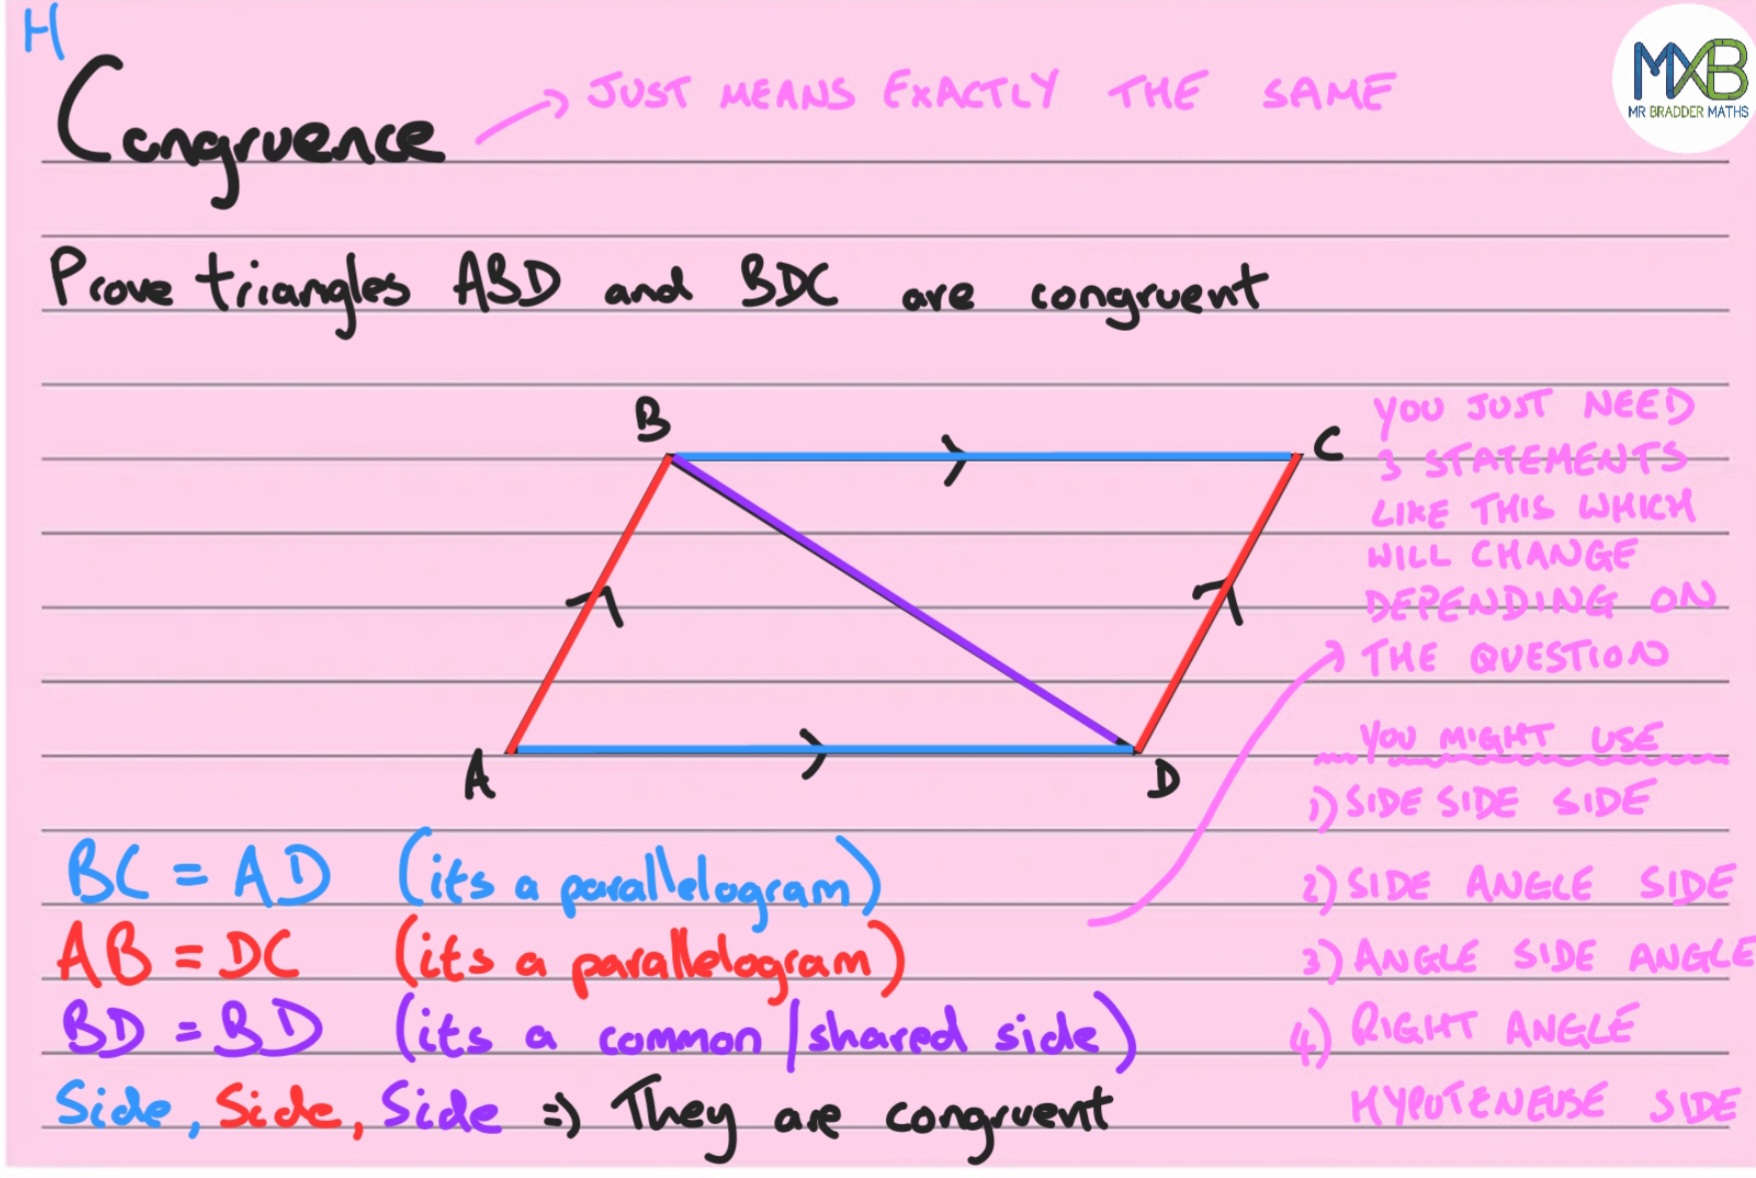 H
Congruence
JUST MEANS EXACTLY THE SAME
MXB
MR BRADDER MATHS
Prove triangles ABD and BDC are congruent
B
C
A
D
YOU JUST NEED
3 STATEMENTS
LIKE THIS WHICH
WILL CHANGE
DEPENDING ON
THE QUESTION
YOU MIGHT USE
1) SIDE SIDE SIDE
2) SIDE ANGLE SIDE
3) ANGLE SIDE ANGLE
4) RIGHT ANGLE
HYPOTENEUSE SIDE
BC = AD (its a parallelogram)
AB = DC (its a parallelogram)
BD = BD (its a common/shared side)
Side, Side, Side => They are congruent